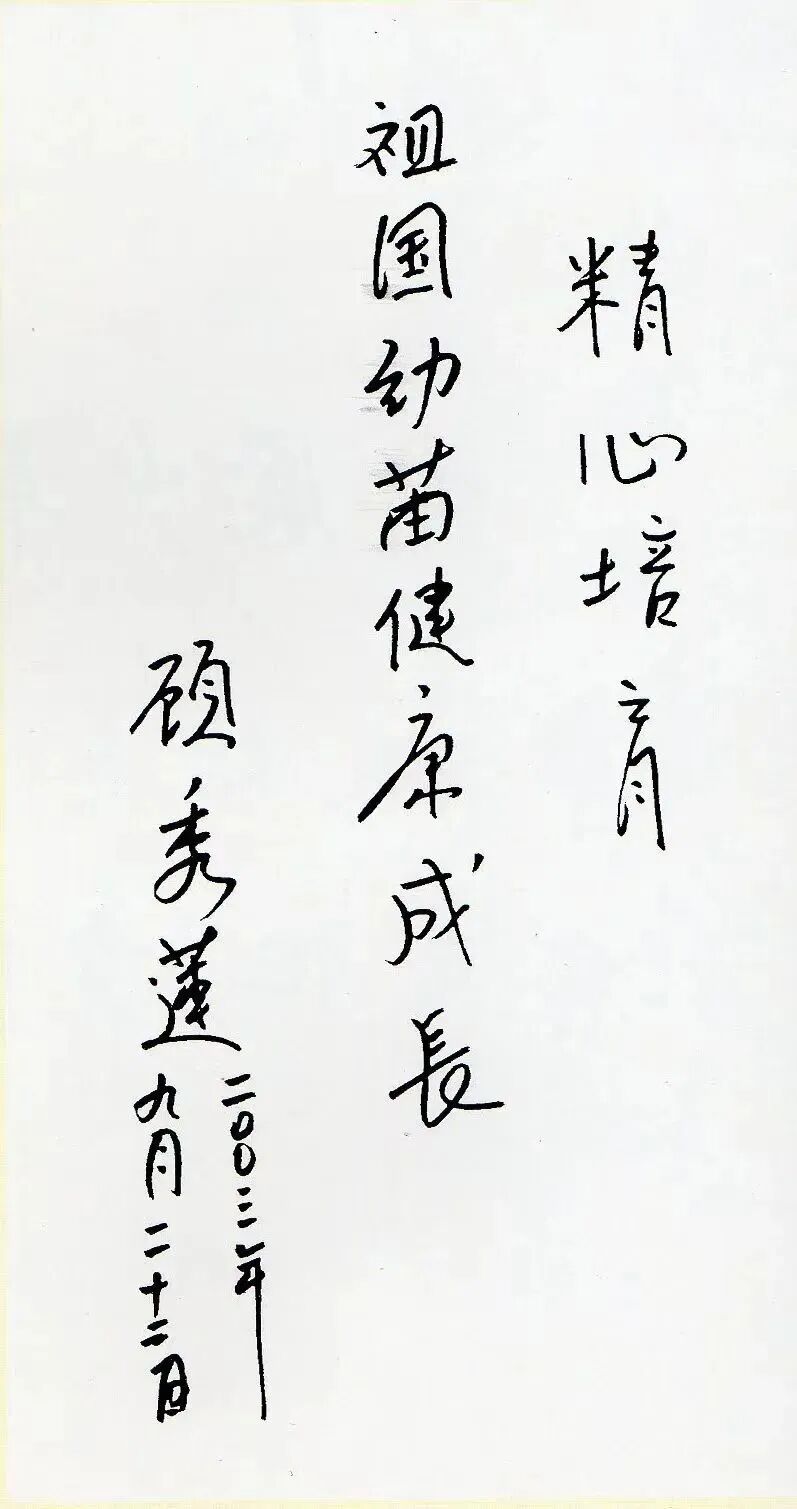 精心培育
祖国幼苗健康成長
顾秀蓮
二00三年
九月二十二日